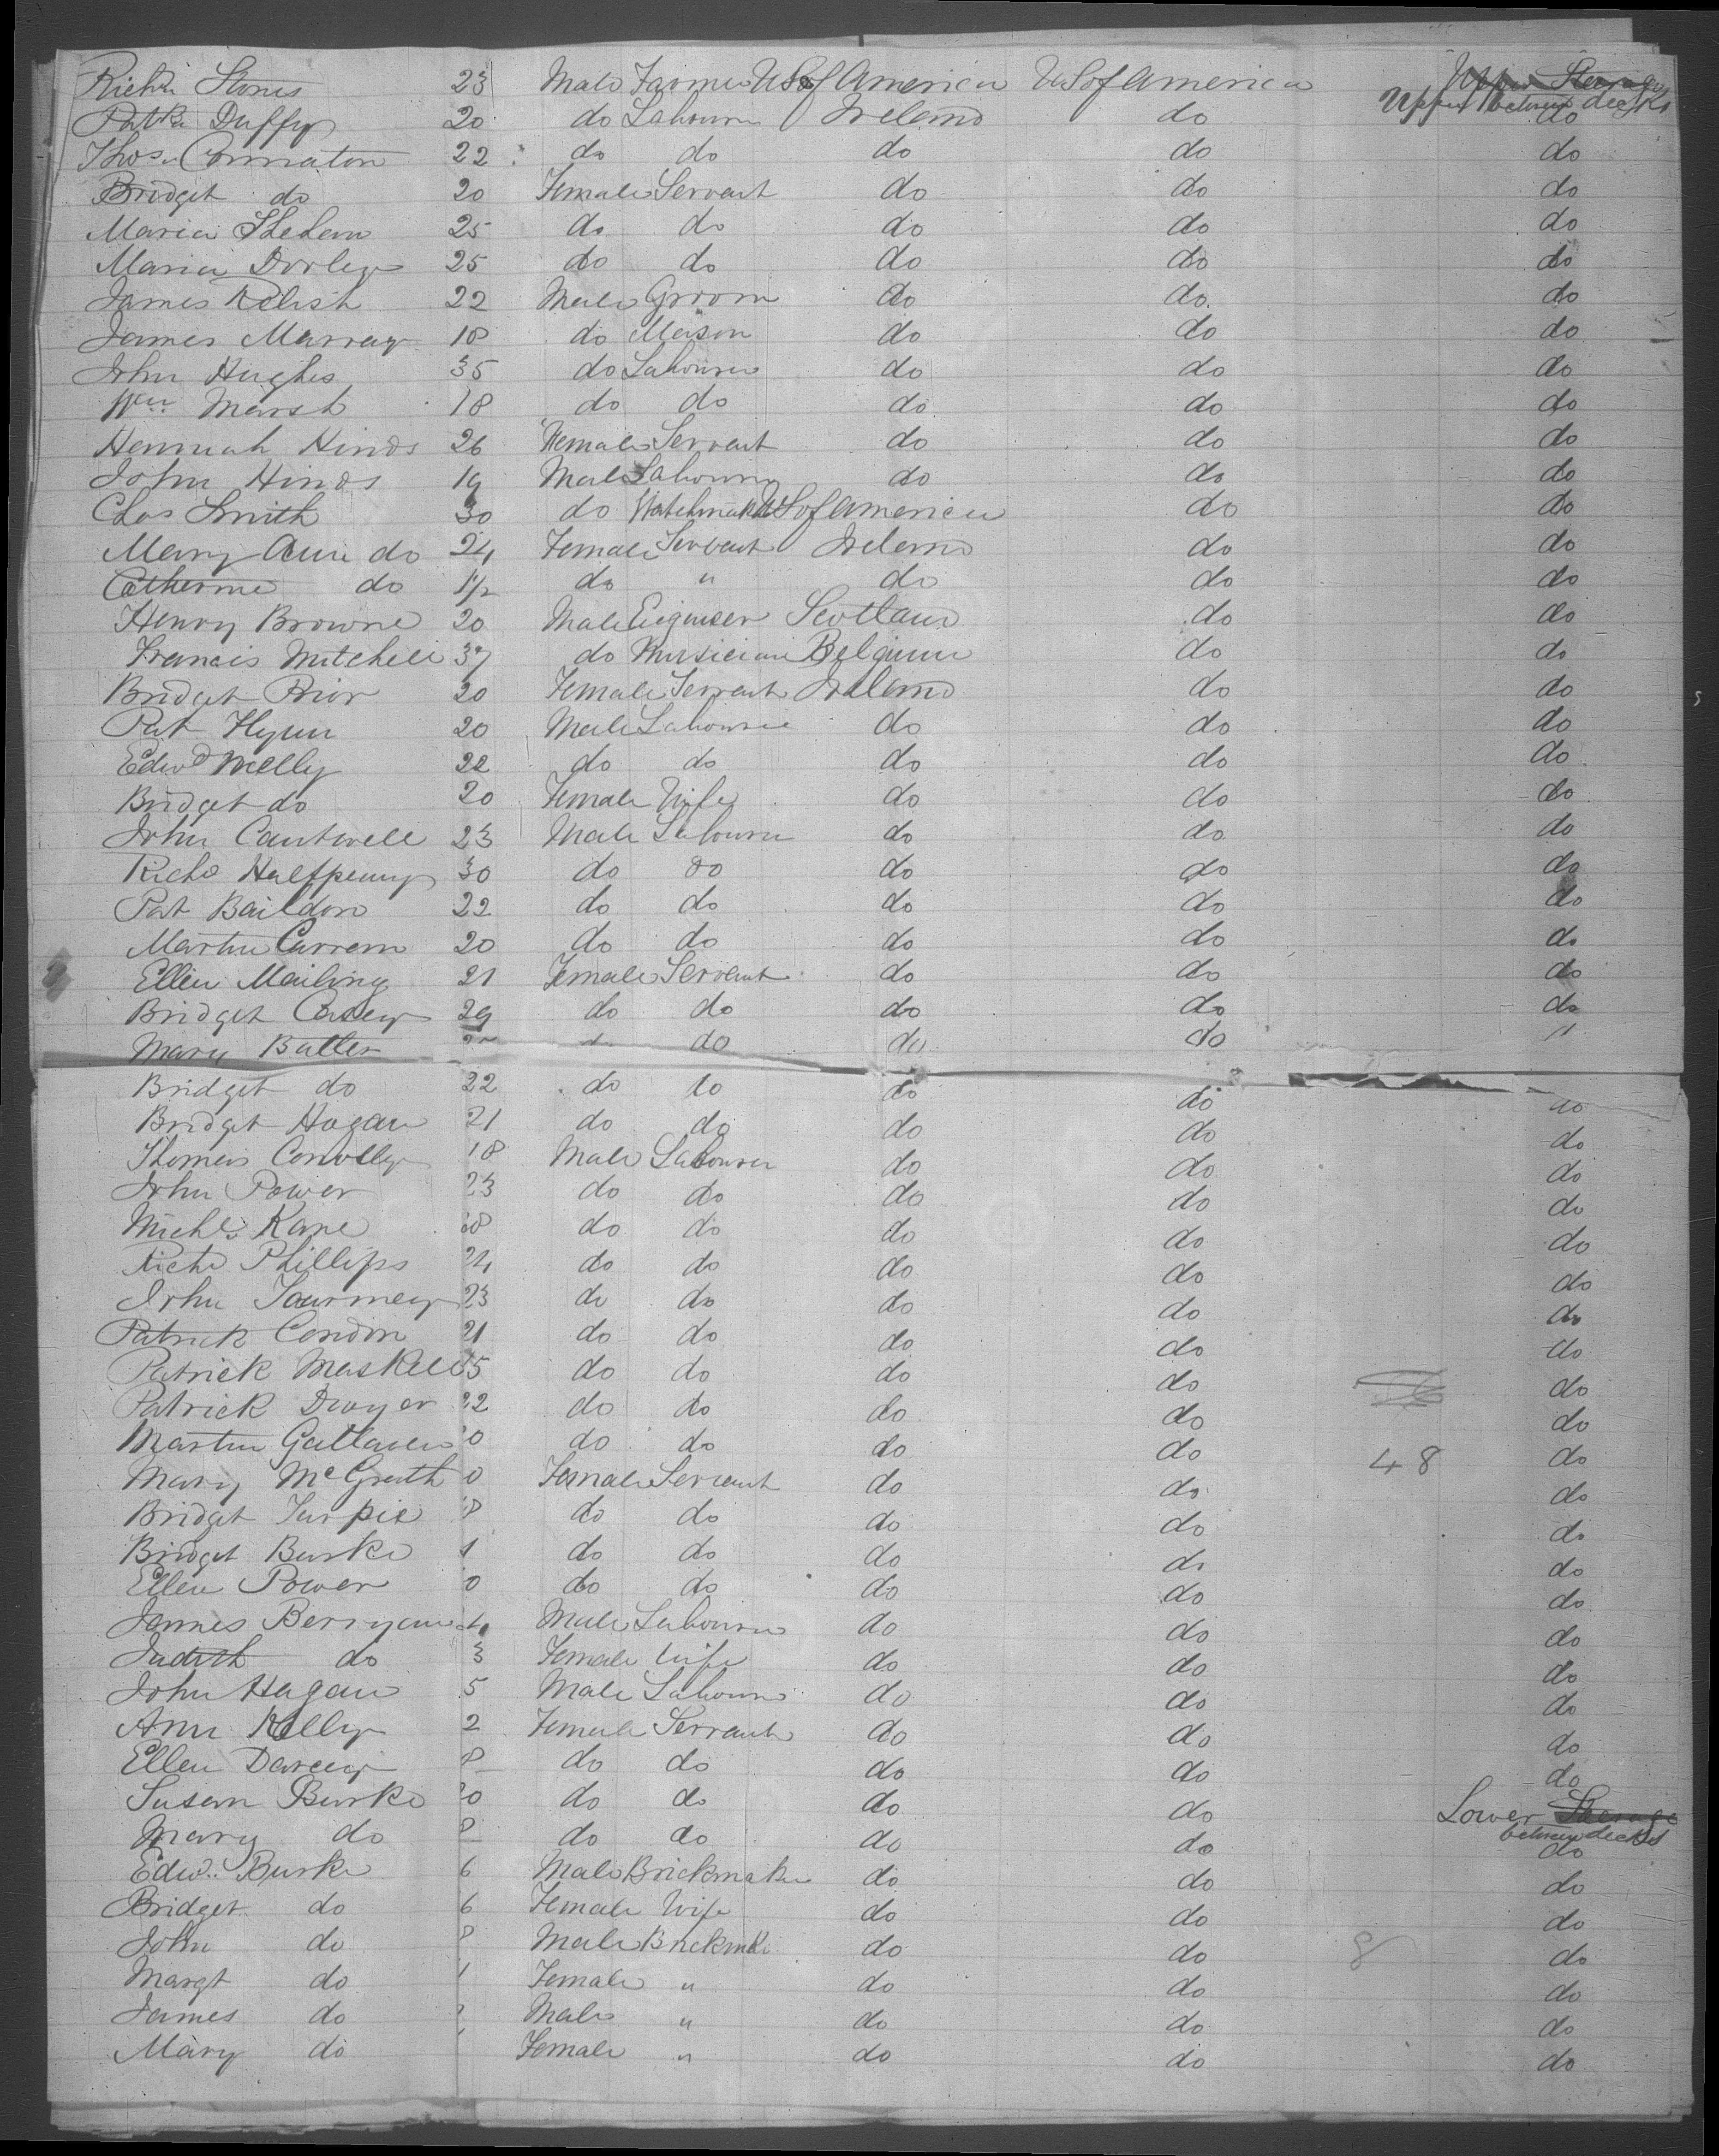 Richd Stones 23 Male Farmer US of America US of America Upper Steerage
Patk Duffy 20 do Labourer Ireland do Upper between decks do
Thos Connaton 22 do do do do do
Bridget do 20 Female Servant do do do
Maria Shehan 25 do do do do do
Maria Dorley 25 do do do do do
James Relish 22 Male Groom do do do
James Murray 18 do Mason do do do
John Hughes 35 do Labourer do do do
Wm Marsh 18 do do do do do
Hannah Hinds 26 Female Servant do do do
John Hinds 19 Male Labourer do do do
Chas Smith 30 do Watchmaker US of America do do
Mary Ann do 24 Female Servant Ireland do do
Catherine do 1/2 do " do do do
Henry Browne 20 Male Engineer Scotland do do
Francis Mitchell 37 do Musician Belgium do do
Bridget Prior 20 Female Servant Ireland do do
Pat Flynn 20 Male Labourer do do do
Edwd Melly 22 do do do do do
Bridget do 20 Female Wife do do do
John Cantwell 23 Male Labourer do do do
Richd Halfpenny 30 do do do do do
Pat Baildon 22 do do do do do
Martin Curran 20 do do do do do
Ellen Mailing 21 Female Servant do do do
Bridget Casey 29 do do do do do
Mary Butler do do do "
Bridget do 22 do do do do do
Bridget Hogan 21 do do do do do
Thomas Conolly 18 Male Labourer do do do
John Power 23 do do do do do
Michl Kane 18 do do do do do
Richd Phillips 24 do do do do do
John Tourney 23 do do do do do
Patrick Condon 21 do do do do do
Patrick Maskell 35 do do do do do
Patrick Dwyer 22 do do do do do
Martin Gallaven 0 do do do do do
Mary McGrath 0 Female Servant do do 48 do
Bridget Turpie 8 do do do do do
Bridget Burke 1 do do do do do
Ellen Power 0 do do do do do
James Berrigan 4 Male Labourer do do do
Judith do 3 Female Wife do do do
John Hagan 5 Male Labourer do do do
Ann Kelly 2 Female Servant do do do
Ellen Darcey 8 do do do do do
Susan Burke 20 do do do do Lower Steerage
Mary do 8 do do do do between decks do
Edwd Burke 6 Male Brickmaker do do do
Bridget do 6 Female Wife do do do
John do 8 Male Brickmkr do do 8 do
Margt do 1 Female " do do do
James do Male " do do do
Mary do Female " do do do